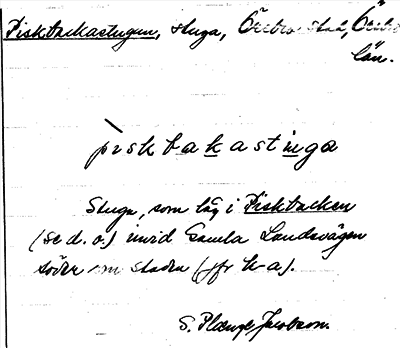 Pisktackastugan, stuga, Örebro stad, Örebro
län.
piskbakastinga
Stuga, som låg i Pisktacken
(se d. o.) invid Gamla Landsvägen
söder om staden (jfr k-a).
S. Plænge Jacobson.